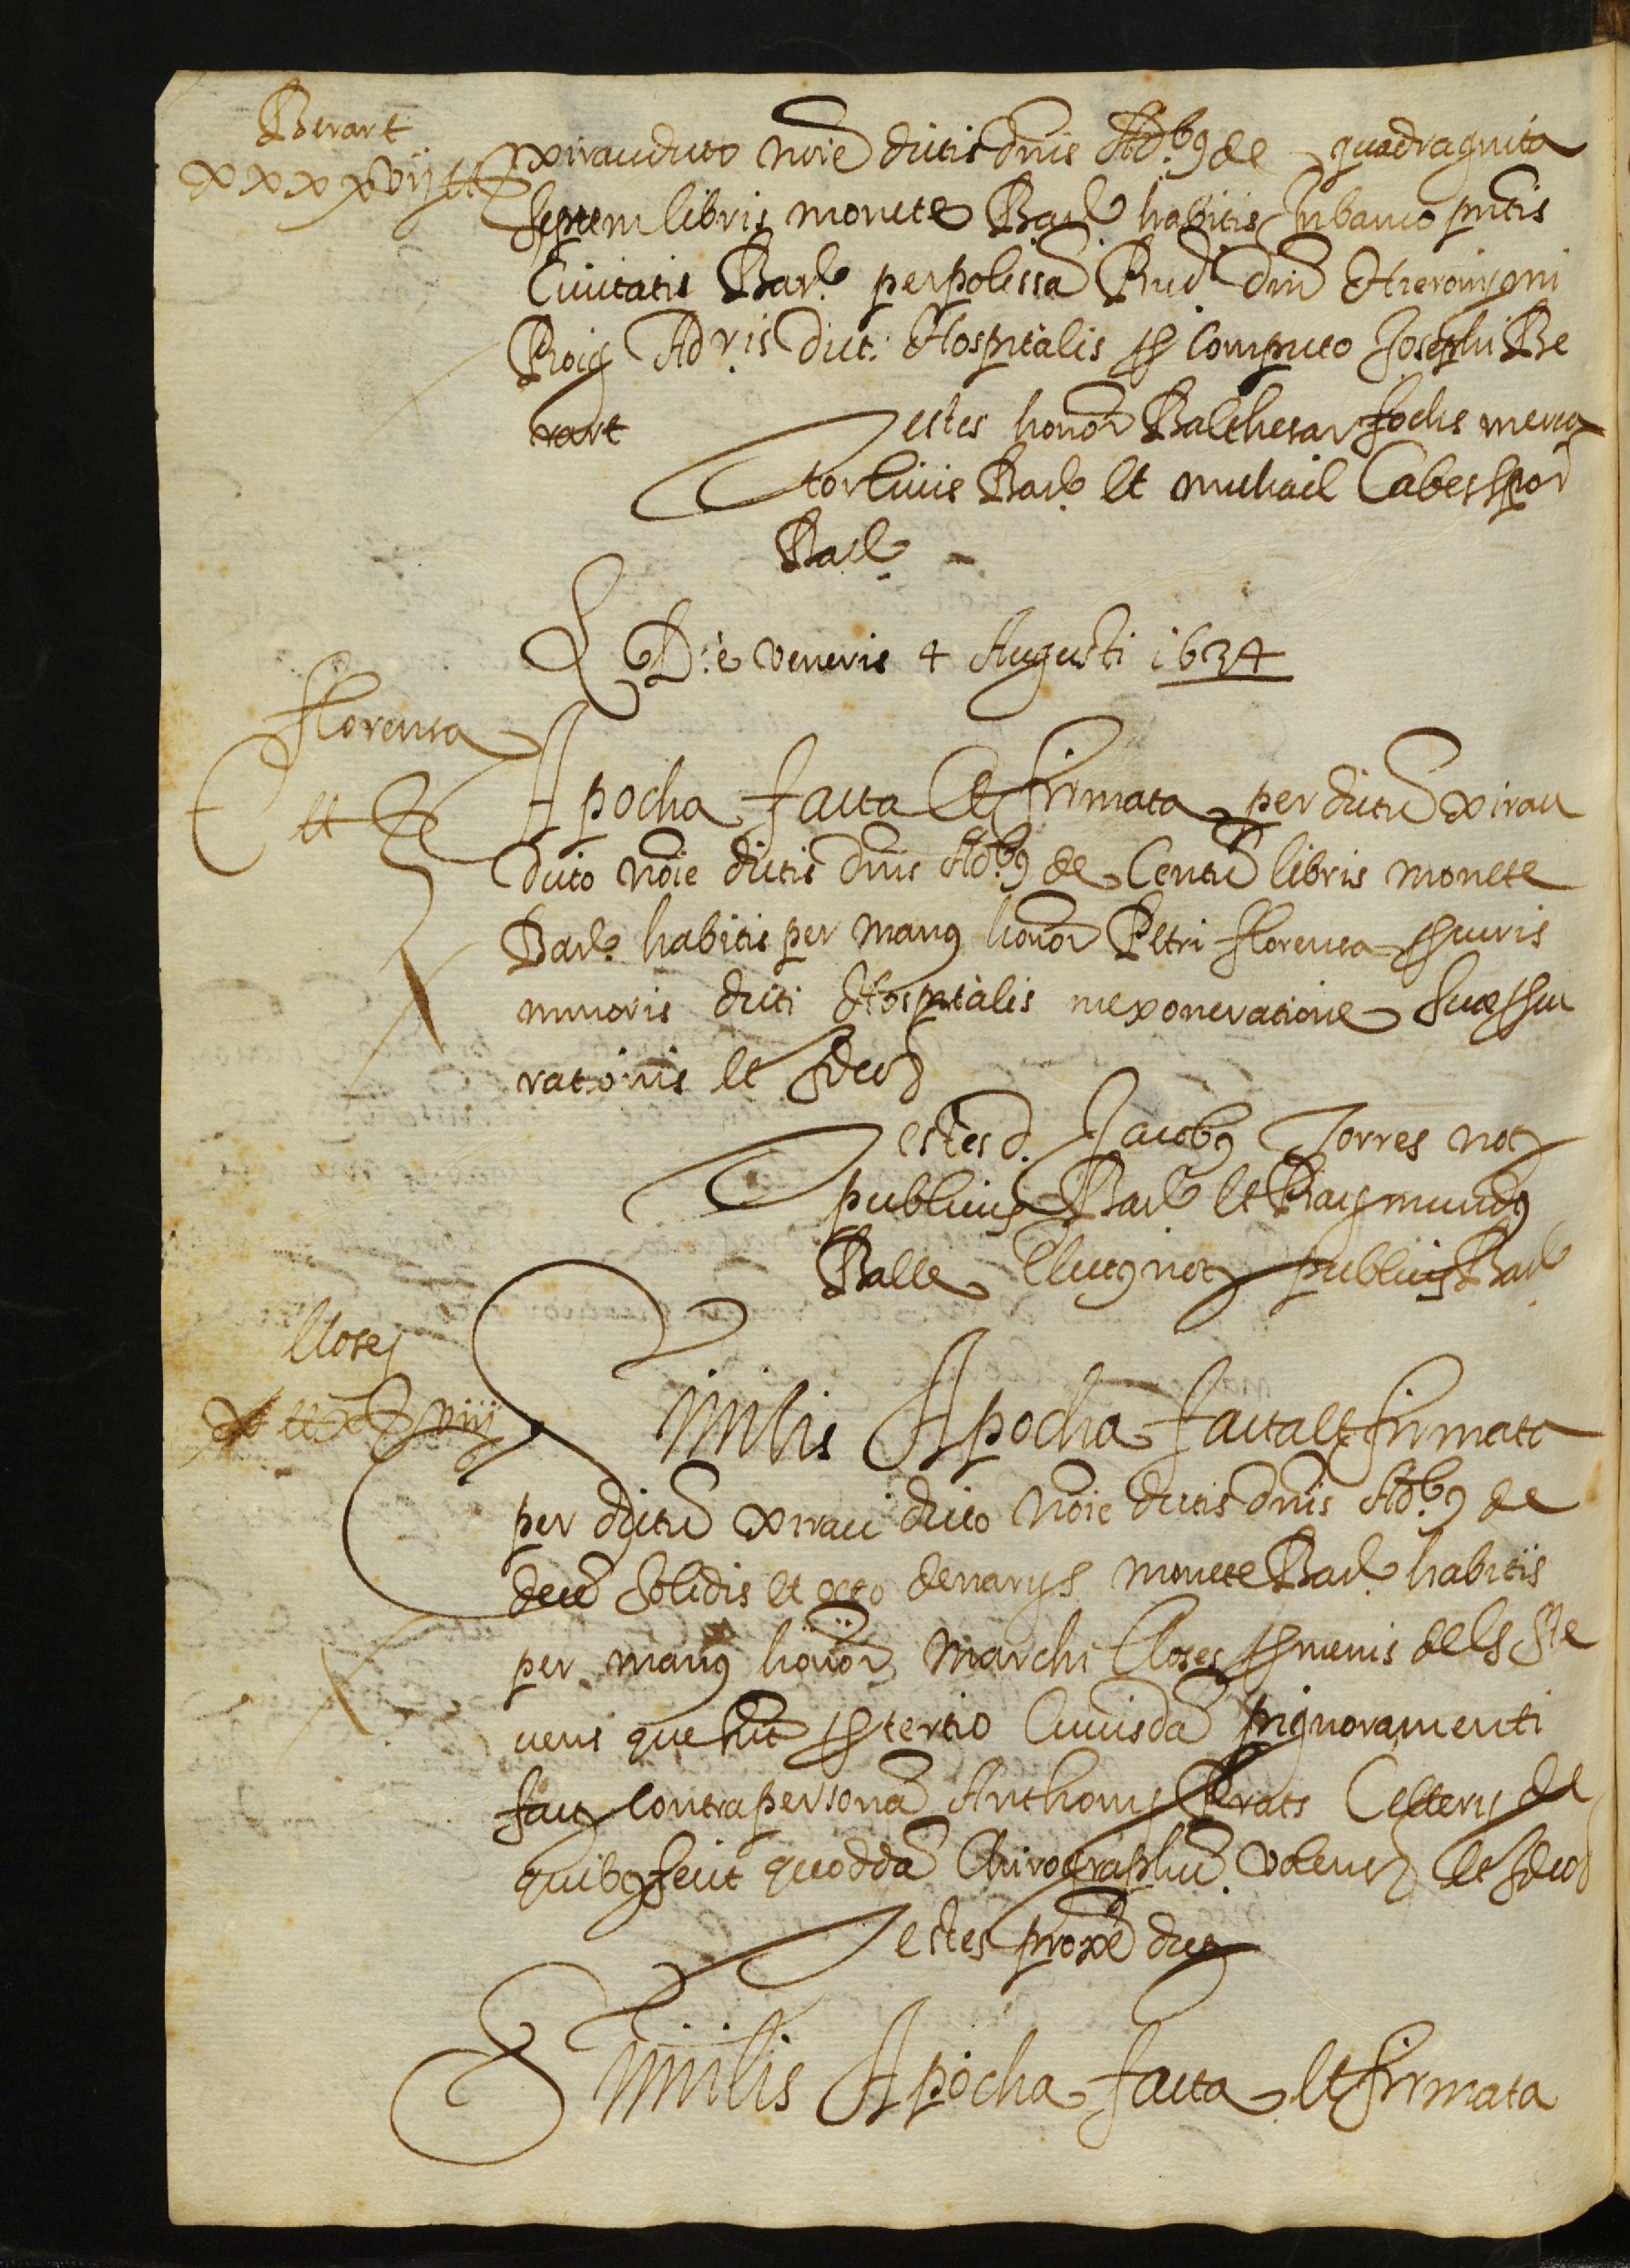 Berart
xxxxvij ll
xirau dicto noie dictis dnis Adb9 de quadraginta
septem libris monete Barñe habitis In banco pntis
Civitatis Barñe per polissa Rnd dni Hieronymi
Roig Adris dict. Hospitalis ꝑ computo Josephi Be
rart
Testes honor Balthesar fochs merca
tor Civis Barñe et michael Cabes
Barñe
Die veneris 4 Augusti 1634
florensa
C ll
Apocha facta et firmata per dictu xirau
dicto noie dictis dnis Adb9 de Centu libris monete
Barñe habitis per man9 honor Petri florensa
minoris dicti Hospitalis in exoneratione sue
rationis et ideo
Testes d. Jacob9 Torres not
publicus Barñe et Raymund9
Balle not publicus Barñe
lloses
x viij
Similis Apocha facta et firmata
per dictu xirau dicto noie dictis dnis Adb9 de
dece solidis et octo denarys monete Barñe habitis
per man9 honor Marchi Closes dels Ste
vens que sut ꝑ tertio cuiusda pignoramenti
fact contra persona Anthony Prats
quib9 fecit quodda Chirographu volens et ideo
Testes proxe dict
Similis Apocha facta et firmata